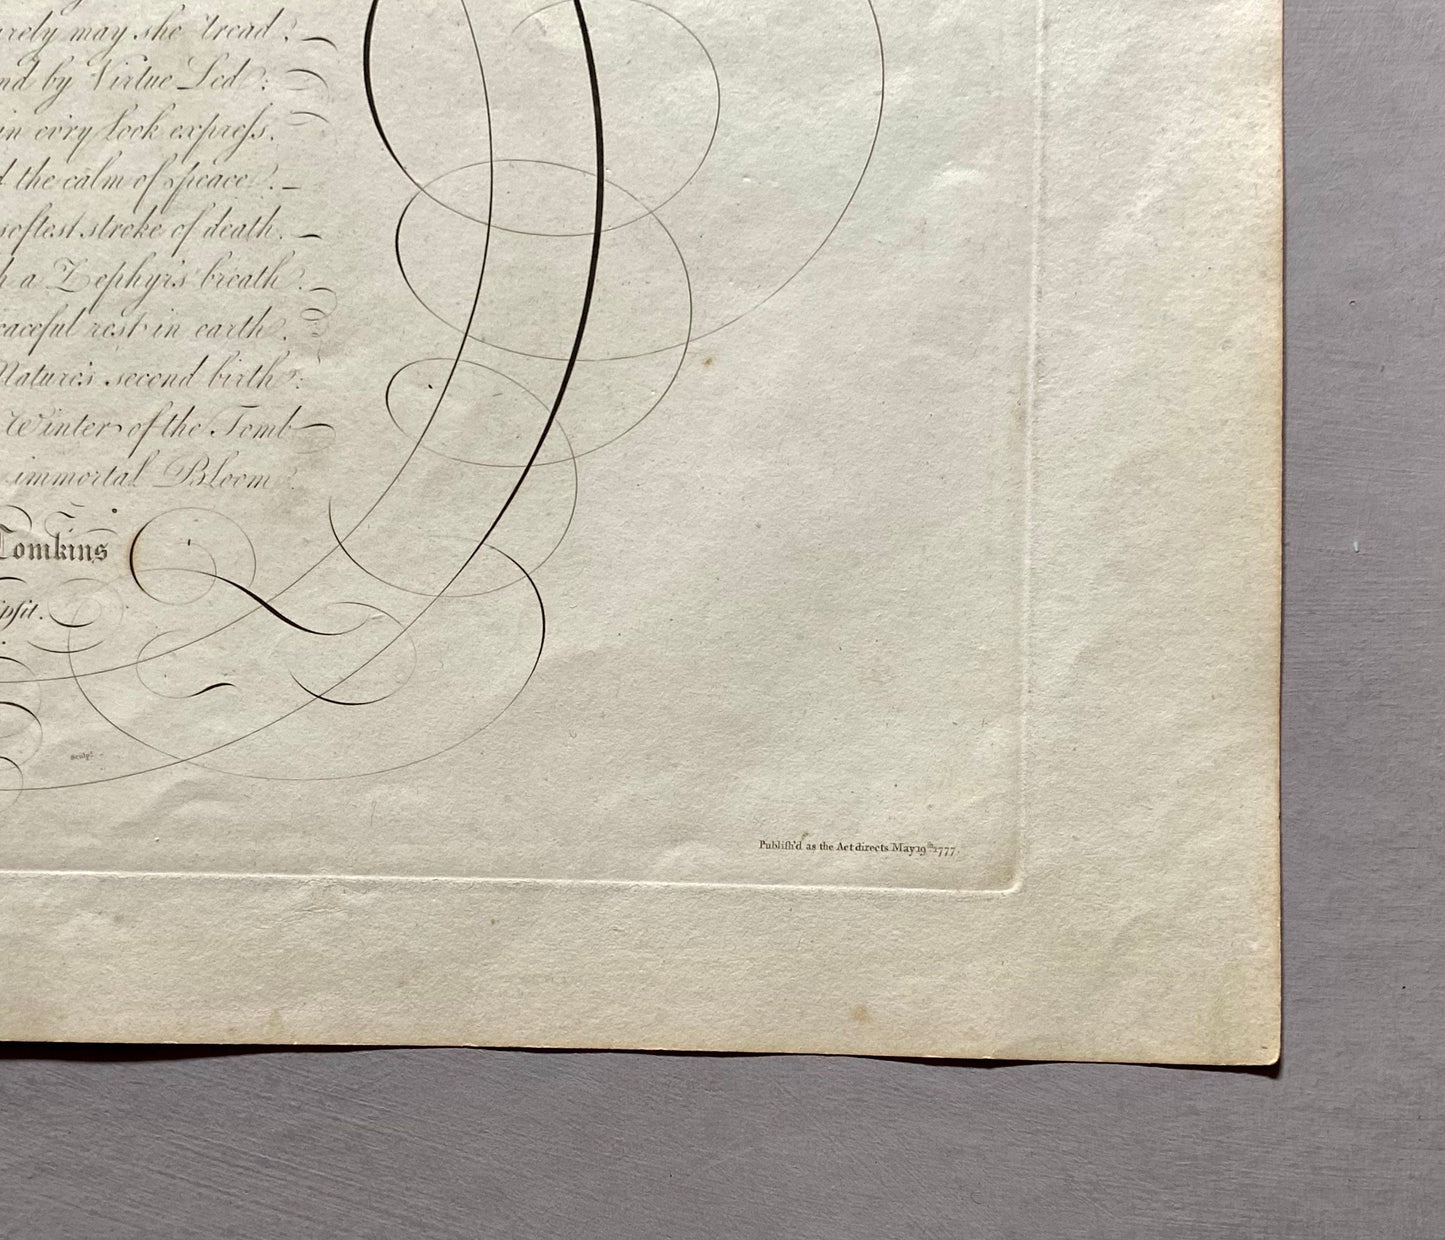 may she tread
by Virtue Led:
in ev'ry look expreſs.
the calm of peace.
softest stroke of death.
a Zephyr's breath
rest in earth.
Nature's second birth:
Winter of the Tomb
immortal Bloom
Tomkins
Sculpt.
Publiſh'd as the Act directs May 19th. 1777.